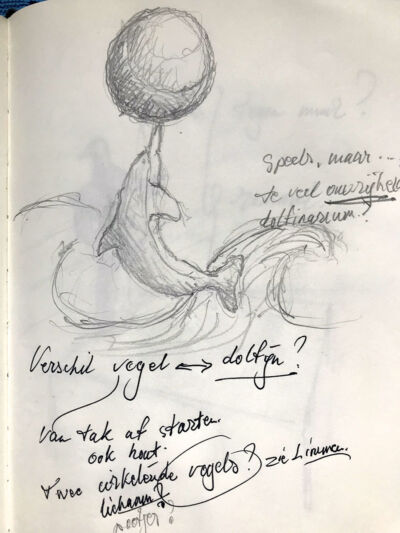 Speels, maar...
te veel onvrijheid
dolfinarium?
Verschil vogel ↔ dolfijn?
Van tak af starten.
ook hout.
twee cirkelende vogels? zie Limmen.
lichaam?
pootjes?